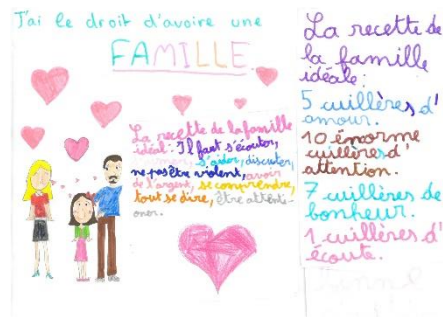 J'ai le droit d'avoire une
FAMILLE
La recette de la famille
idéal: Il faut s'écouter,
s'aider, discuter,
ne pas être violent, avoir
de l'argent, se comprendre,
tout se dire, être attenti-
oner.
La recette de
la famille
idéale:
5 cuillères d'
amour.
10 énorme
cuillères d'
attention.
7 cuillères de
bonheur.
1 cuillères d'
écoute.